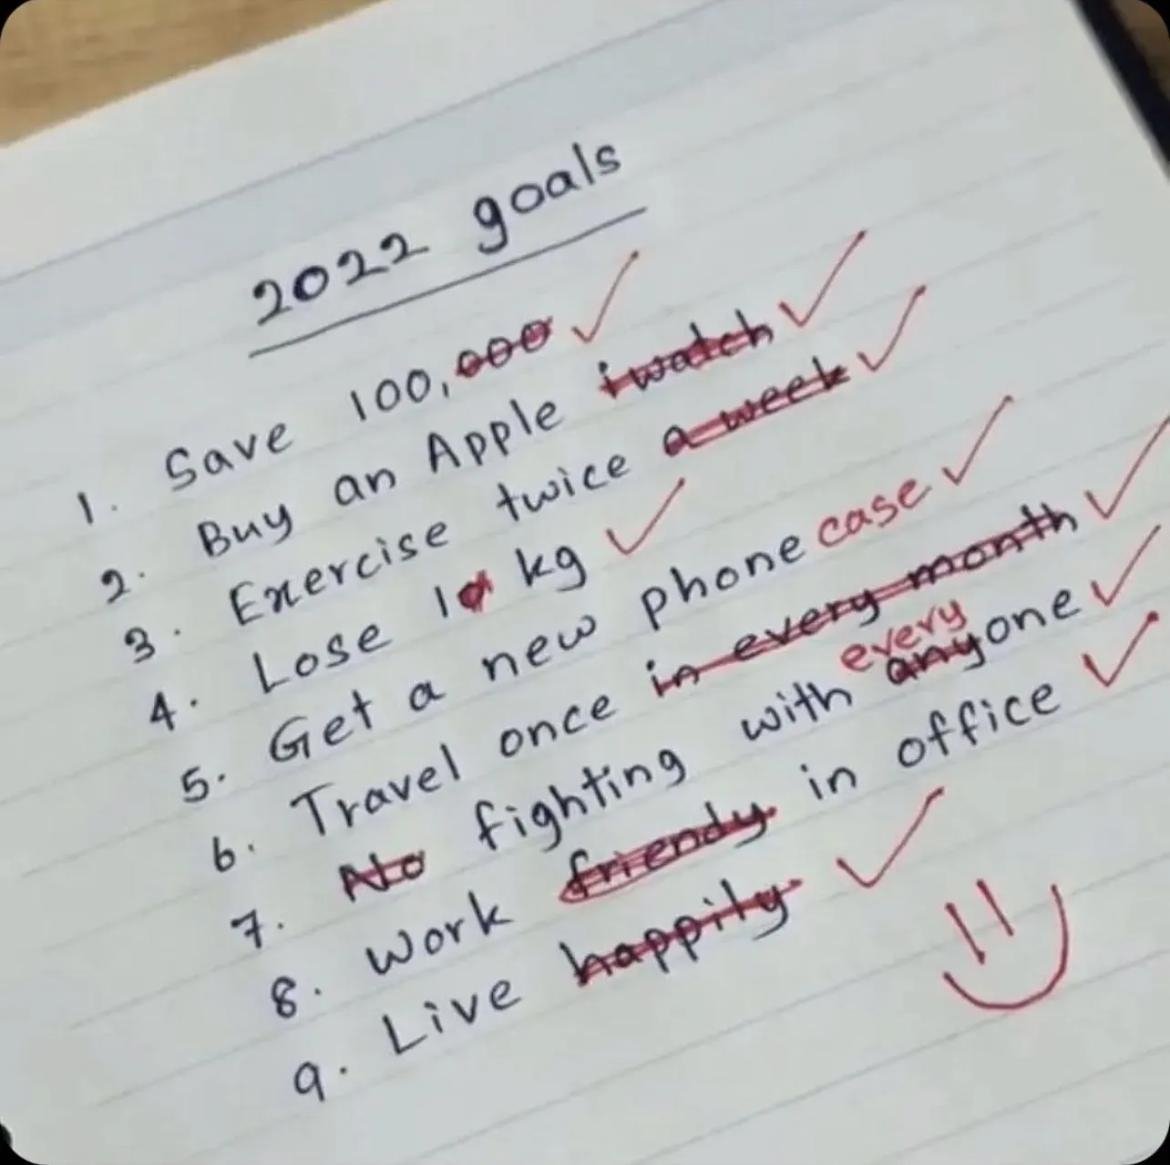 2022 goals
1. Save 100,000
2. Buy an Apple iwatch
3. Exercise twice a week
4. Lose 10 kg
5. Get a new phone case
6. Travel once in every month
every
7. No fighting with anyone
8. Work friendy in office
9. Live happily